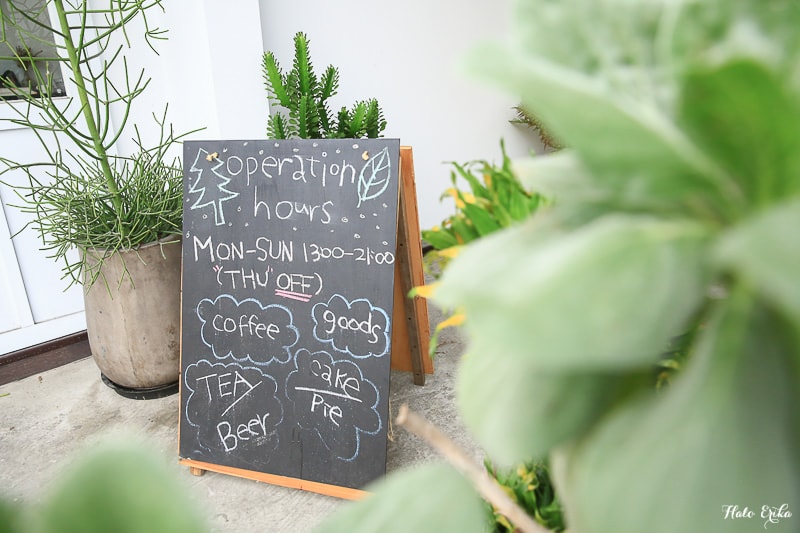 operation
hours
MON-SUN 13:00-21:00
"(THU" OFF)
coffee
goods
TEA/
Beer
cake
Pie
Halo Erika